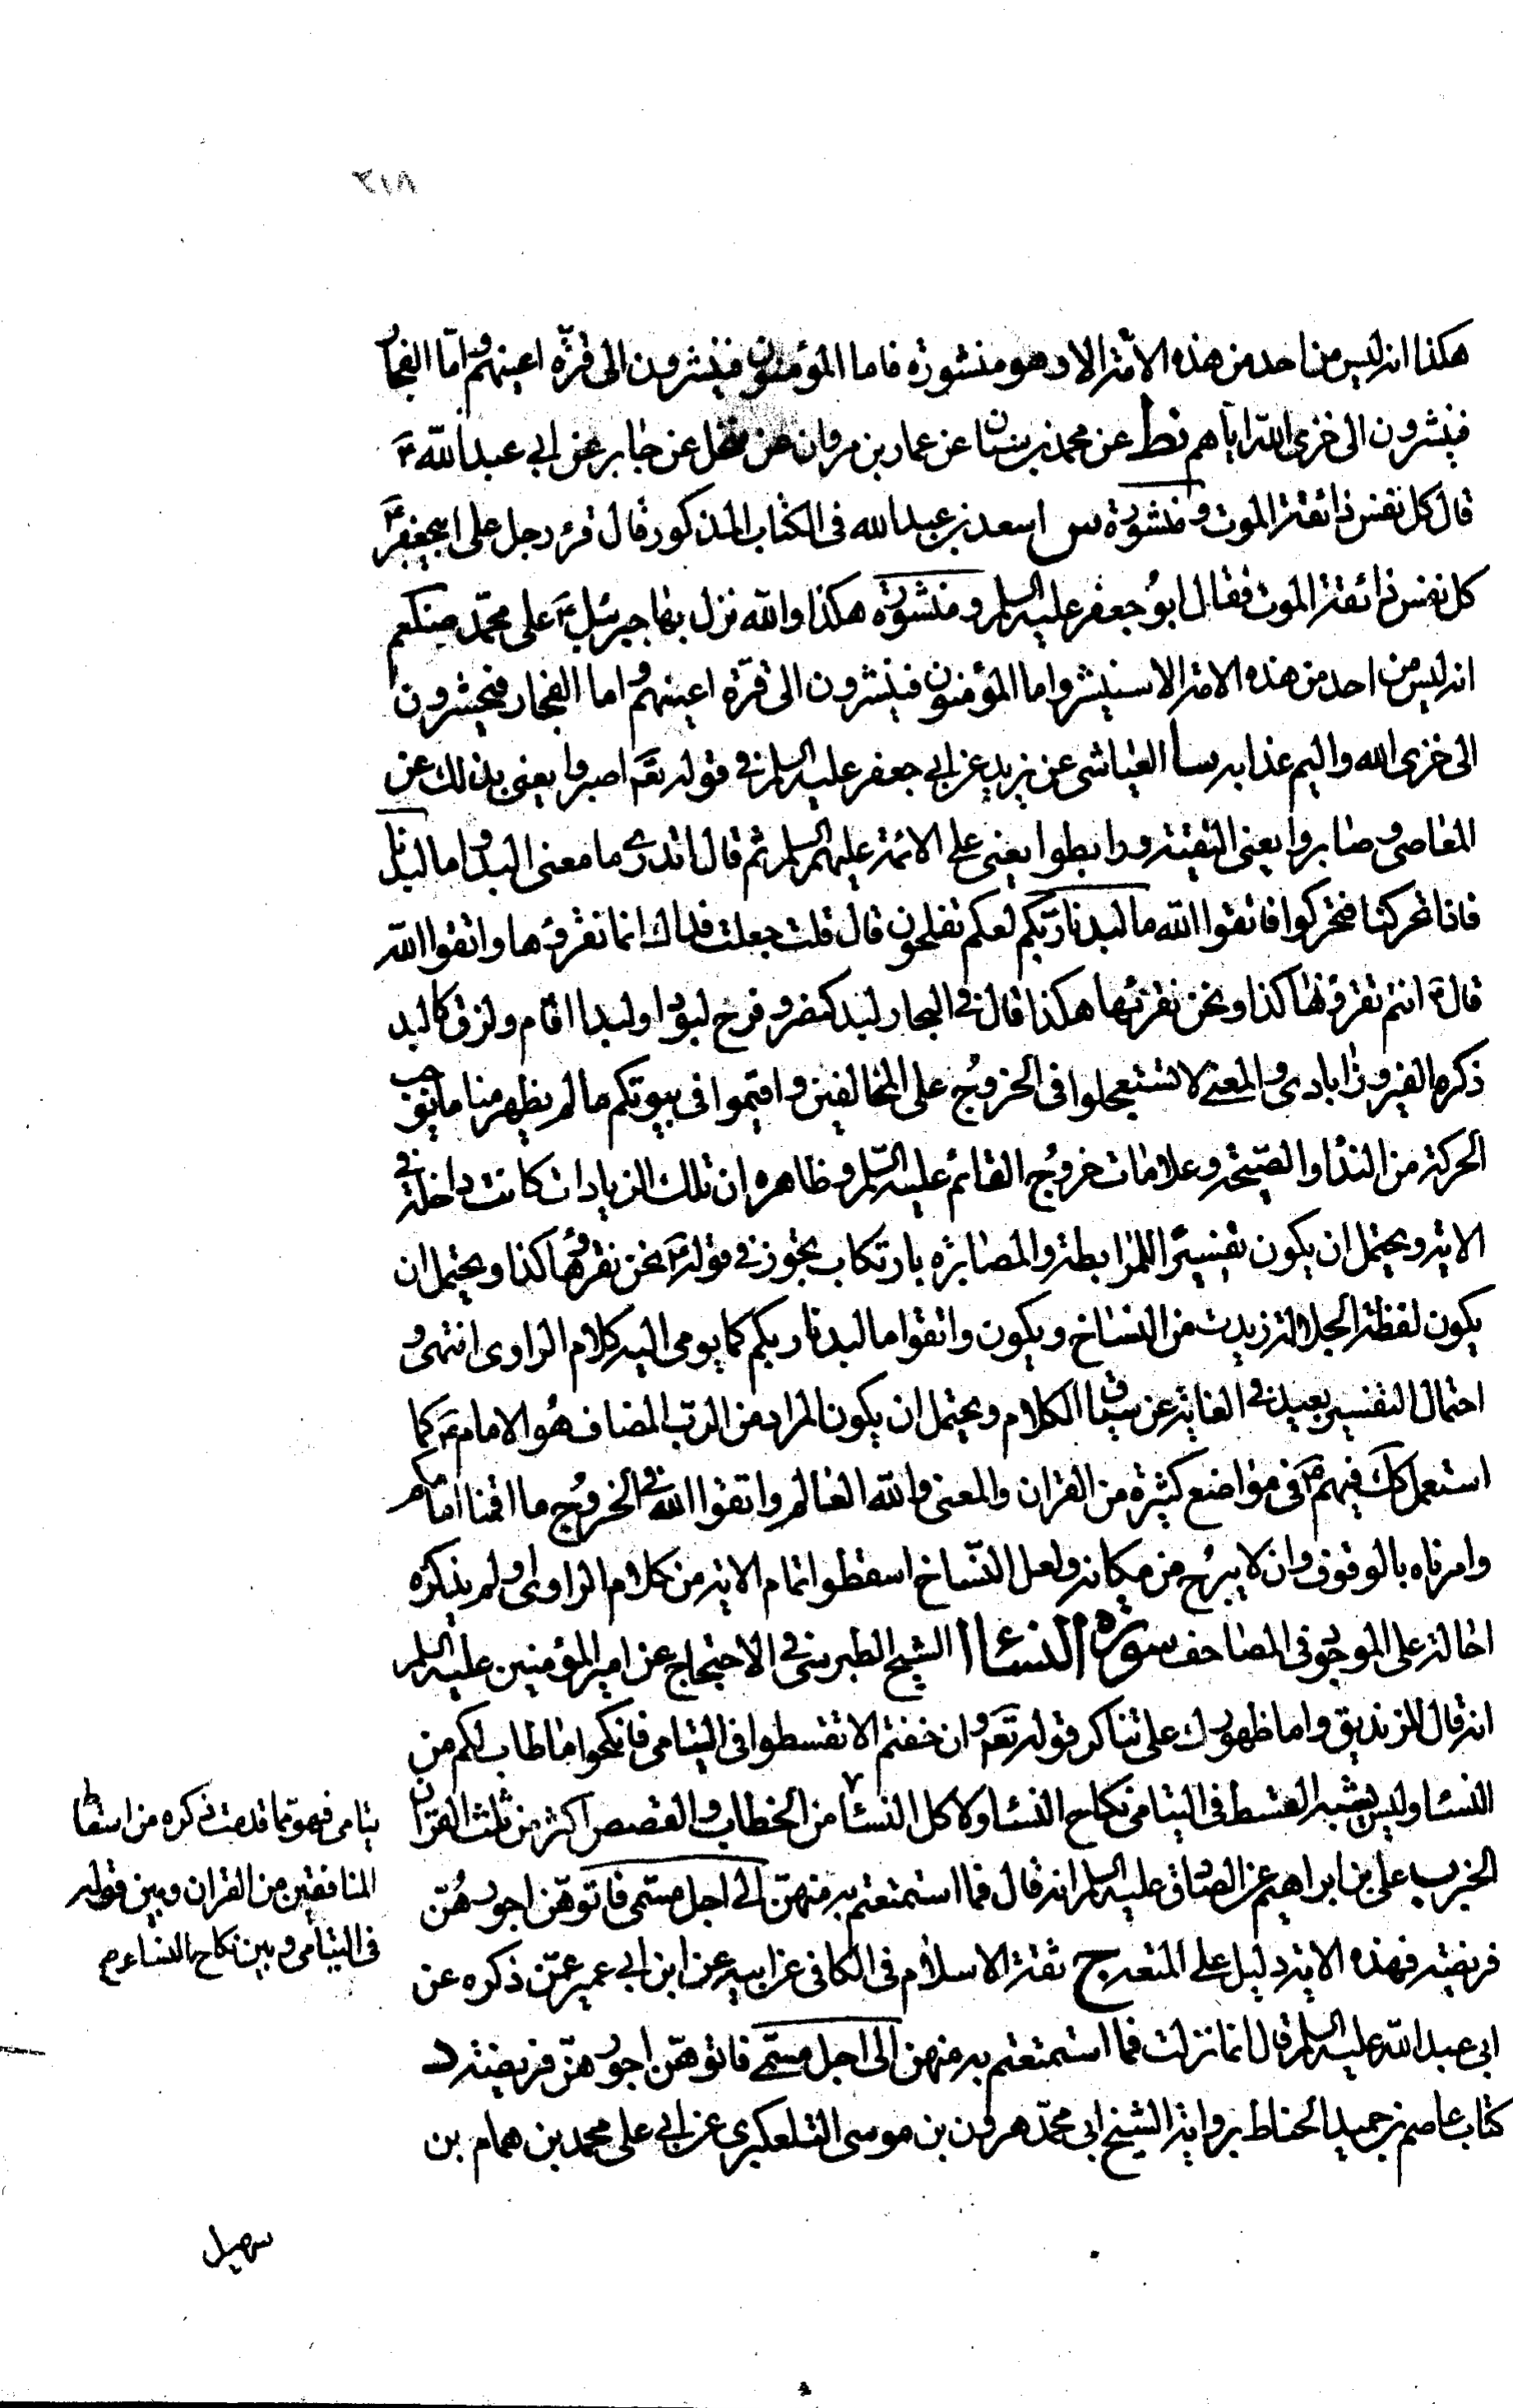 ٢١٨
هكذا انه ليس من احد من هذه الامة الا وهو منشورة فاما المؤمنون فينشرون الى قرة اعينهم واما الفجار
فينشرون الى خزى الله اياهم نط عن محمد بن سنان عن عمار بن مروان عن منخل عن جابر عن ابي عبد الله ع
قال كل نفس ذائقة الموت ومنشورة س اسعد بن عبد الله في الكتاب المذكور قال قرء رجل على ابيجعفر ع
كل نفس ذائقة الموت فقال ابو جعفر عليه السلم ومنشورة هكذا والله نزل بها جبرئيل ع على محمد ص
انه ليس من احد من هذه الامة الا سينشر واما المؤمنون فينشرون الى قرة اعينهم واما الفجار فيحشرون
الى خزى الله واليم عذابه سا العياشى عن يزيد عن ابي جعفر عليه السلم في قوله تعم اصبروا يعنى بذلك عن
المعاصى وصابروا يعنى التقية ورابطوا يعنى على الائمة عليهم السلم ثم قال اتدرى ما معنى البدوا ما لبدنا
فاذا تحركنا فتحركوا فاتقوا الله ما لبدنا ربكم لعلكم تفلحون قال قلت جعلت فداك انما نقرؤها واتقوا الله
قال ع انتم تقرؤنها كذا ونحن نقرئها هكذا قال في البحار لبد كنصر وفرح لبودا ولبدا اقام ولزق كالبد
ذكره الفيروزابادى والمعنى لا تستعجلوا في الخروج على المخالفين واقيموا في بيوتكم ما لم يظهر منا ما يوجب
الحركة من النداء والصيحة وعلامات خروج القائم عليه السلم وظاهره ان تلك الزيادات كانت داخلة في
الاية ويحتمل ان يكون تفسيرا للمرابطة والمصابرة بارتكاب تجوز في قوله ع نحن نقرؤها كذا ويحتمل ان
يكون لفظة الجلالة زيدت من النساخ ويكون واتقوا ما لبدنا ربكم كما يومى اليه كلام الراوى انتهى و
احتمال التفسير بعيد في الغاية عن سياق الكلام ويحتمل ان يكون المراد من الرب المضاف هو الامام ع كما
استعمل كك فيهم ع في مواضع كثيرة من القران والمعنى والله العالم واتقوا الله في الخروج ما اقمنا امامكم
وامرناه بالوقوف وان لا يبرح من مكانه ولعل النساخ اسقطوا تمام الاية من كلام الراوى او لم يذكره
احالة على الموجود في المصاحف سورة النساء ا الشيخ الطبرسى في الاحتجاج عن امير المؤمنين عليه السلم
انه قال للزنديق واما ظهورك على تناكر قوله تعم وان خفتم الا تقسطوا في اليتامى فانكحوا ما طاب لكم من
النساء وليس يشبه القسط في اليتامى نكاح النساء ولا كل النساء من الخطاب والقصص اكثر من ثلث القران
يتامى فهو مما قدمت ذكره من اسقاط
المنافقين من القران وبين قوله
في اليتامى وبين نكاح النساء صح
الخبر ب على بن ابراهيم عن الصادق عليه السلم انه قال فما استمتعتم به منهن الى اجل مسمى فاتوهن اجورهن
فريضة فهذه الاية دليل على المتعة ج ثقة الاسلام في الكافى عن ابيه عن ابن ابي عمير عمن ذكره عن
ابي عبد الله عليه السلم قال انما نزلت فما استمتعتم به منهن الى اجل مسمى فاتوهن اجورهن فريضة د
كتاب عاصم بن حميد الحناط برواية الشيخ ابي محمد هرون بن موسى التلعكبرى عن ابي على محمد بن همام بن
سهيل